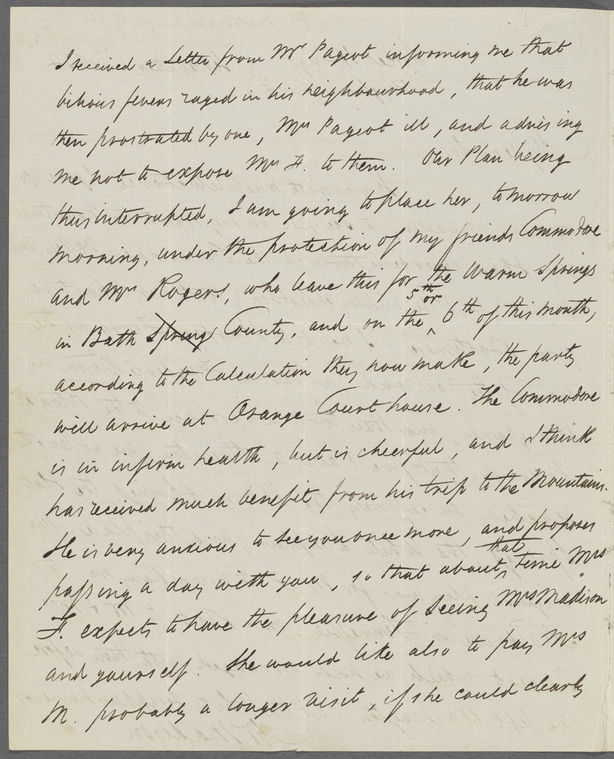 I received a Letter from Mr Pageot informing me that
bilious fevers raged in his neighbourhood, that he was
then prostrated by one, Mrs Pageot ill, and advising
me not to expose Mrs F. to them. Our Plan being
thus interrupted, I am going to place her, tomorrow
morning, under the protection of my friends Commodore
and Mrs Rogers, who leave this for the Warm Springs
in Bath Spring County, and on the 5th or 6th of this month,
according to the Calculation they now make, the party
will arrive at Orange Court house. The Commodore
is in infirm health, but is cheerful, and I think
has received much benefit from his trip to the Mountains.
He is very anxious to see you once more, and proposes
passing a day with you, so that about that time Mrs
F. expects to have the pleasure of seeing Mrs Madison
and yourself. She would like also to pay Mrs
M. probably a longer visit, if she could clearly